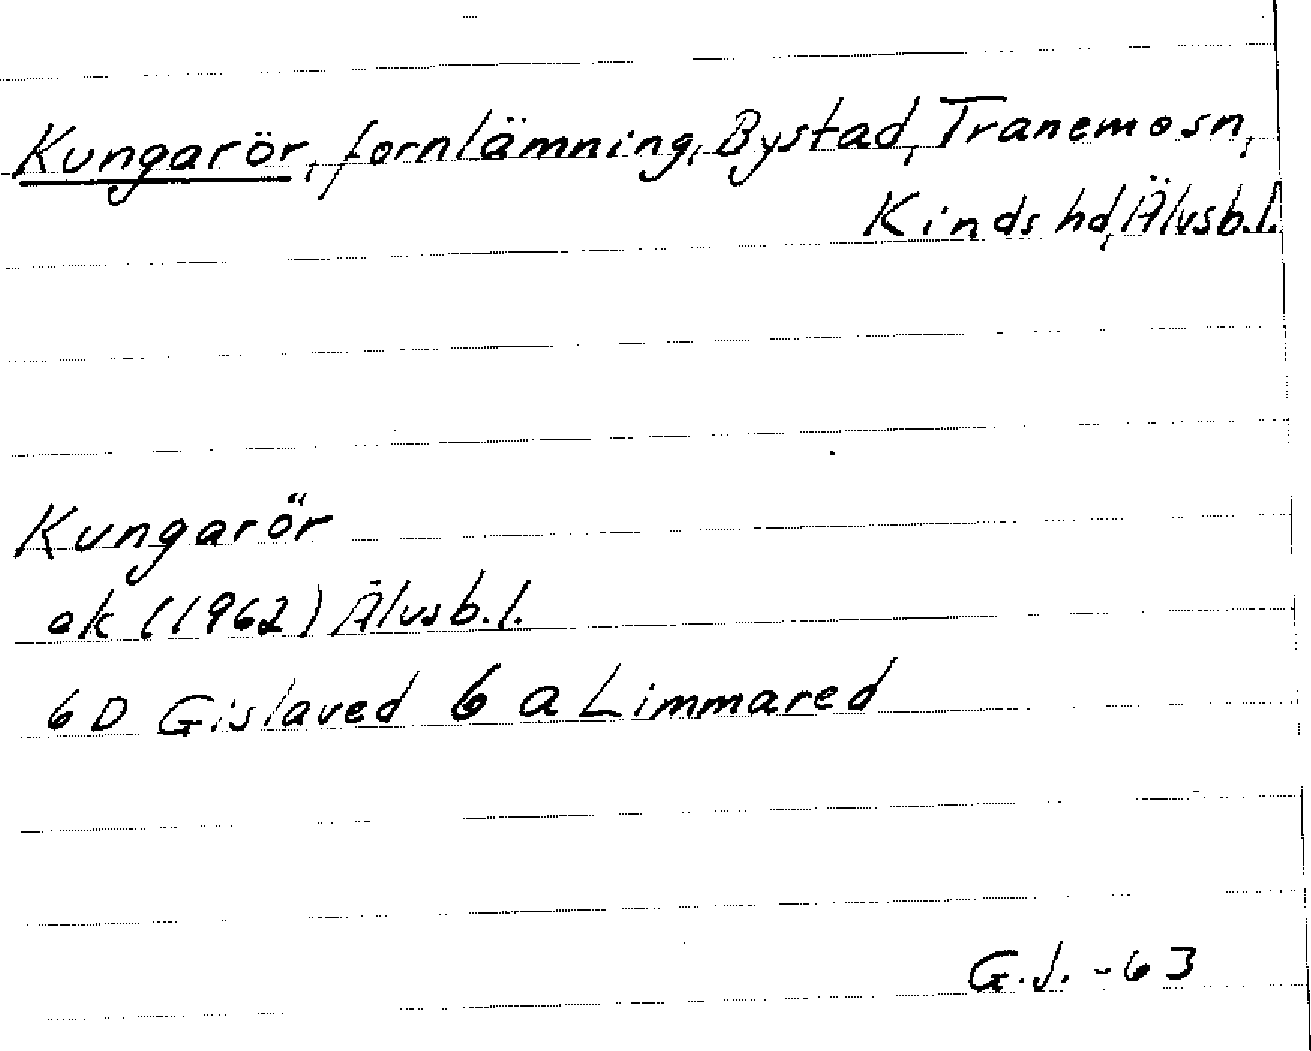 Kungarör, fornlämning, Bystad, Tranemo sn,
Kinds hd, Älvsb.l.
Kungarör
ek (1962) Älvsb.l.
6D Gislaved 6 a Limmared
G.J. -63